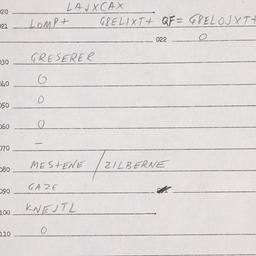 020 LAJXCAX
021 LOMP+ GBELIXT+ QF= GBELOJXT+
022 0
030 GRESERER
040 0
050 0
060 0
070 -
080 MESTENE / ZILBERNE
090 GAZE
100 KNEJTL
110 0